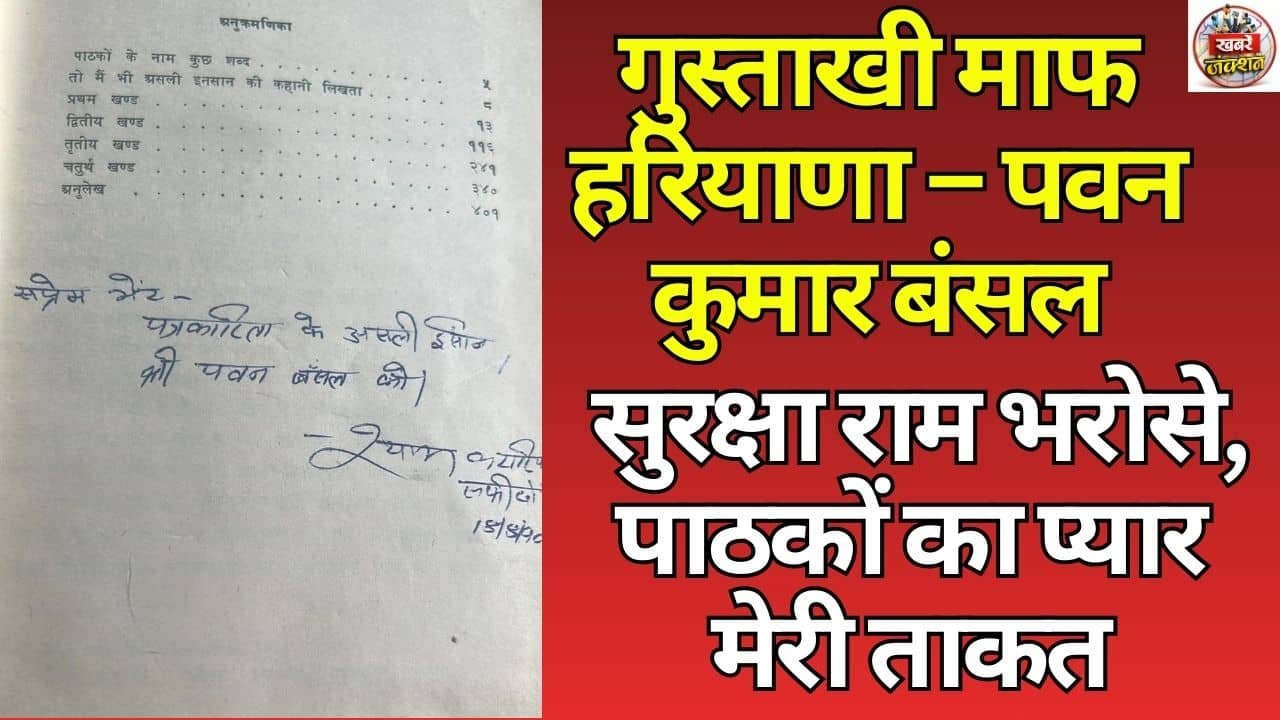 अनुक्रमणिका
पाठकों के नाम कुछ शब्द . . . . . . . . . . ५
तो मैं भी असली इनसान की कहानी लिखता . . . . . ८
प्रथम खण्ड . . . . . . . . . . १३
द्वितीय खण्ड . . . . . . . . . . ११६
तृतीय खण्ड . . . . . . . . . . २४१
चतुर्थ खण्ड . . . . . . . . . . ३४०
अनुलेख . . . . . . . . . . ४०१
सप्रेम भेंट -
पत्रकारिता के असली इंसान
श्री पवन बंसल को।
- श्याम
सफीदों
खबरें
जंक्शन
गुस्ताखी माफ
हरियाणा – पवन
कुमार बंसल
सुरक्षा राम भरोसे,
पाठकों का प्यार
मेरी ताकत